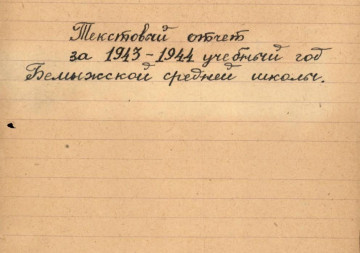 Текстовый отчет
за 1943-1944 учебный год
Бемыжской средней школы.